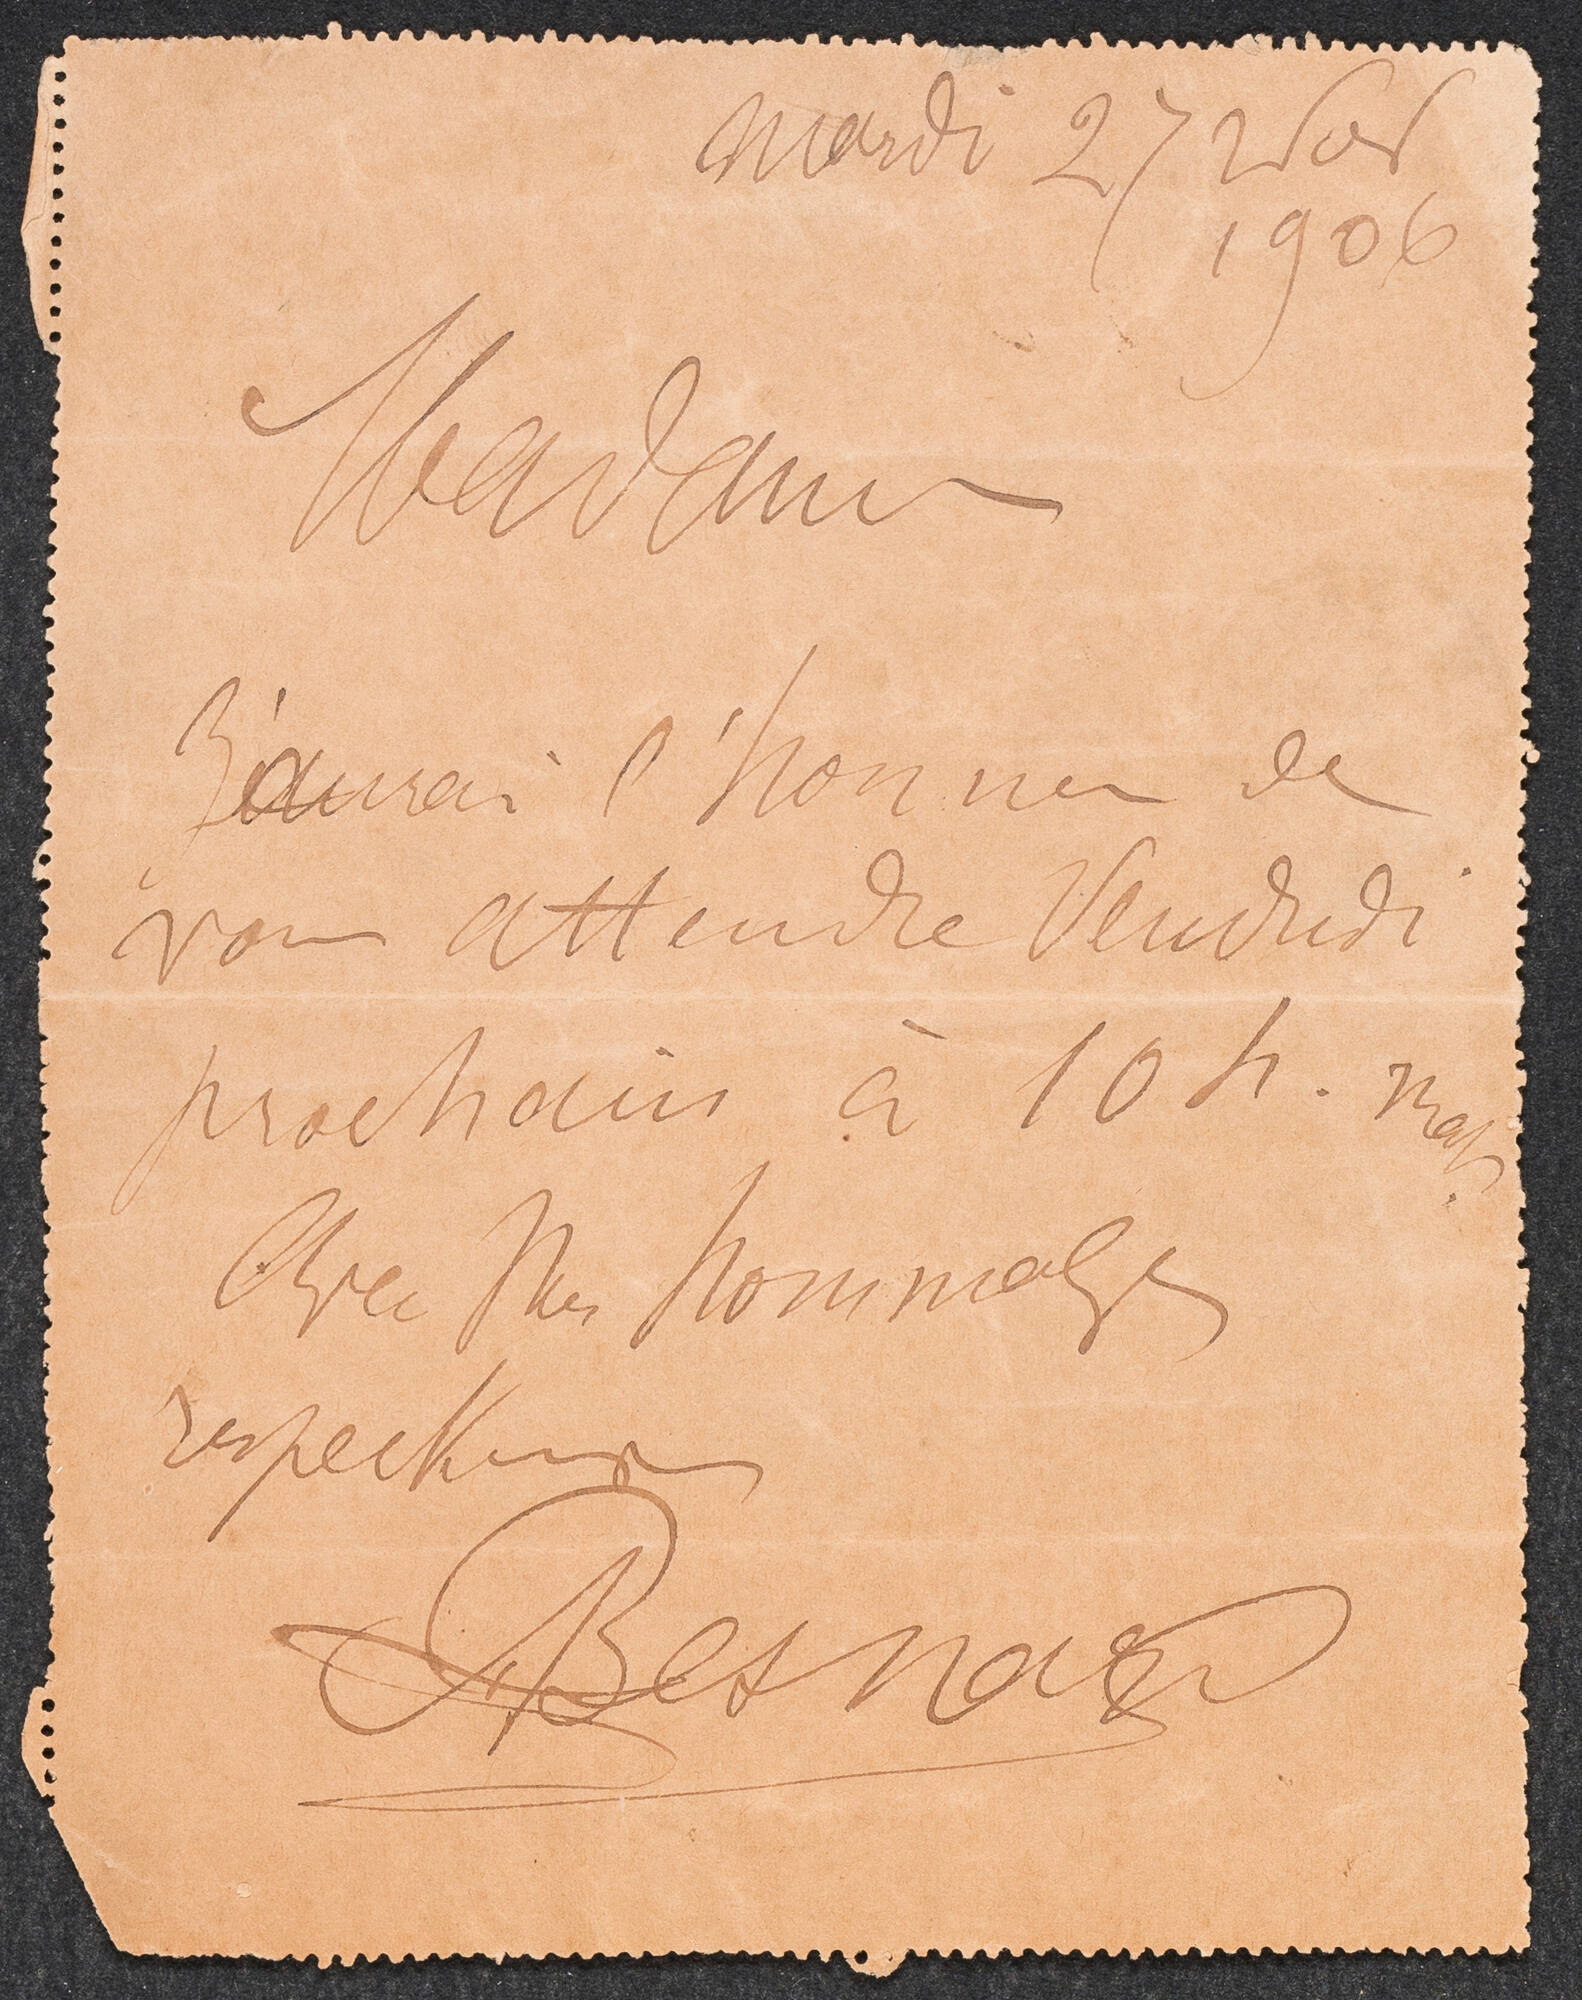 mardi 27 Nov
1906
Madame
J'aurai l'honneur de
vous attendre Vendredi
prochain à 10 h. mat.
Avec mes hommages
respectueux
Besnard